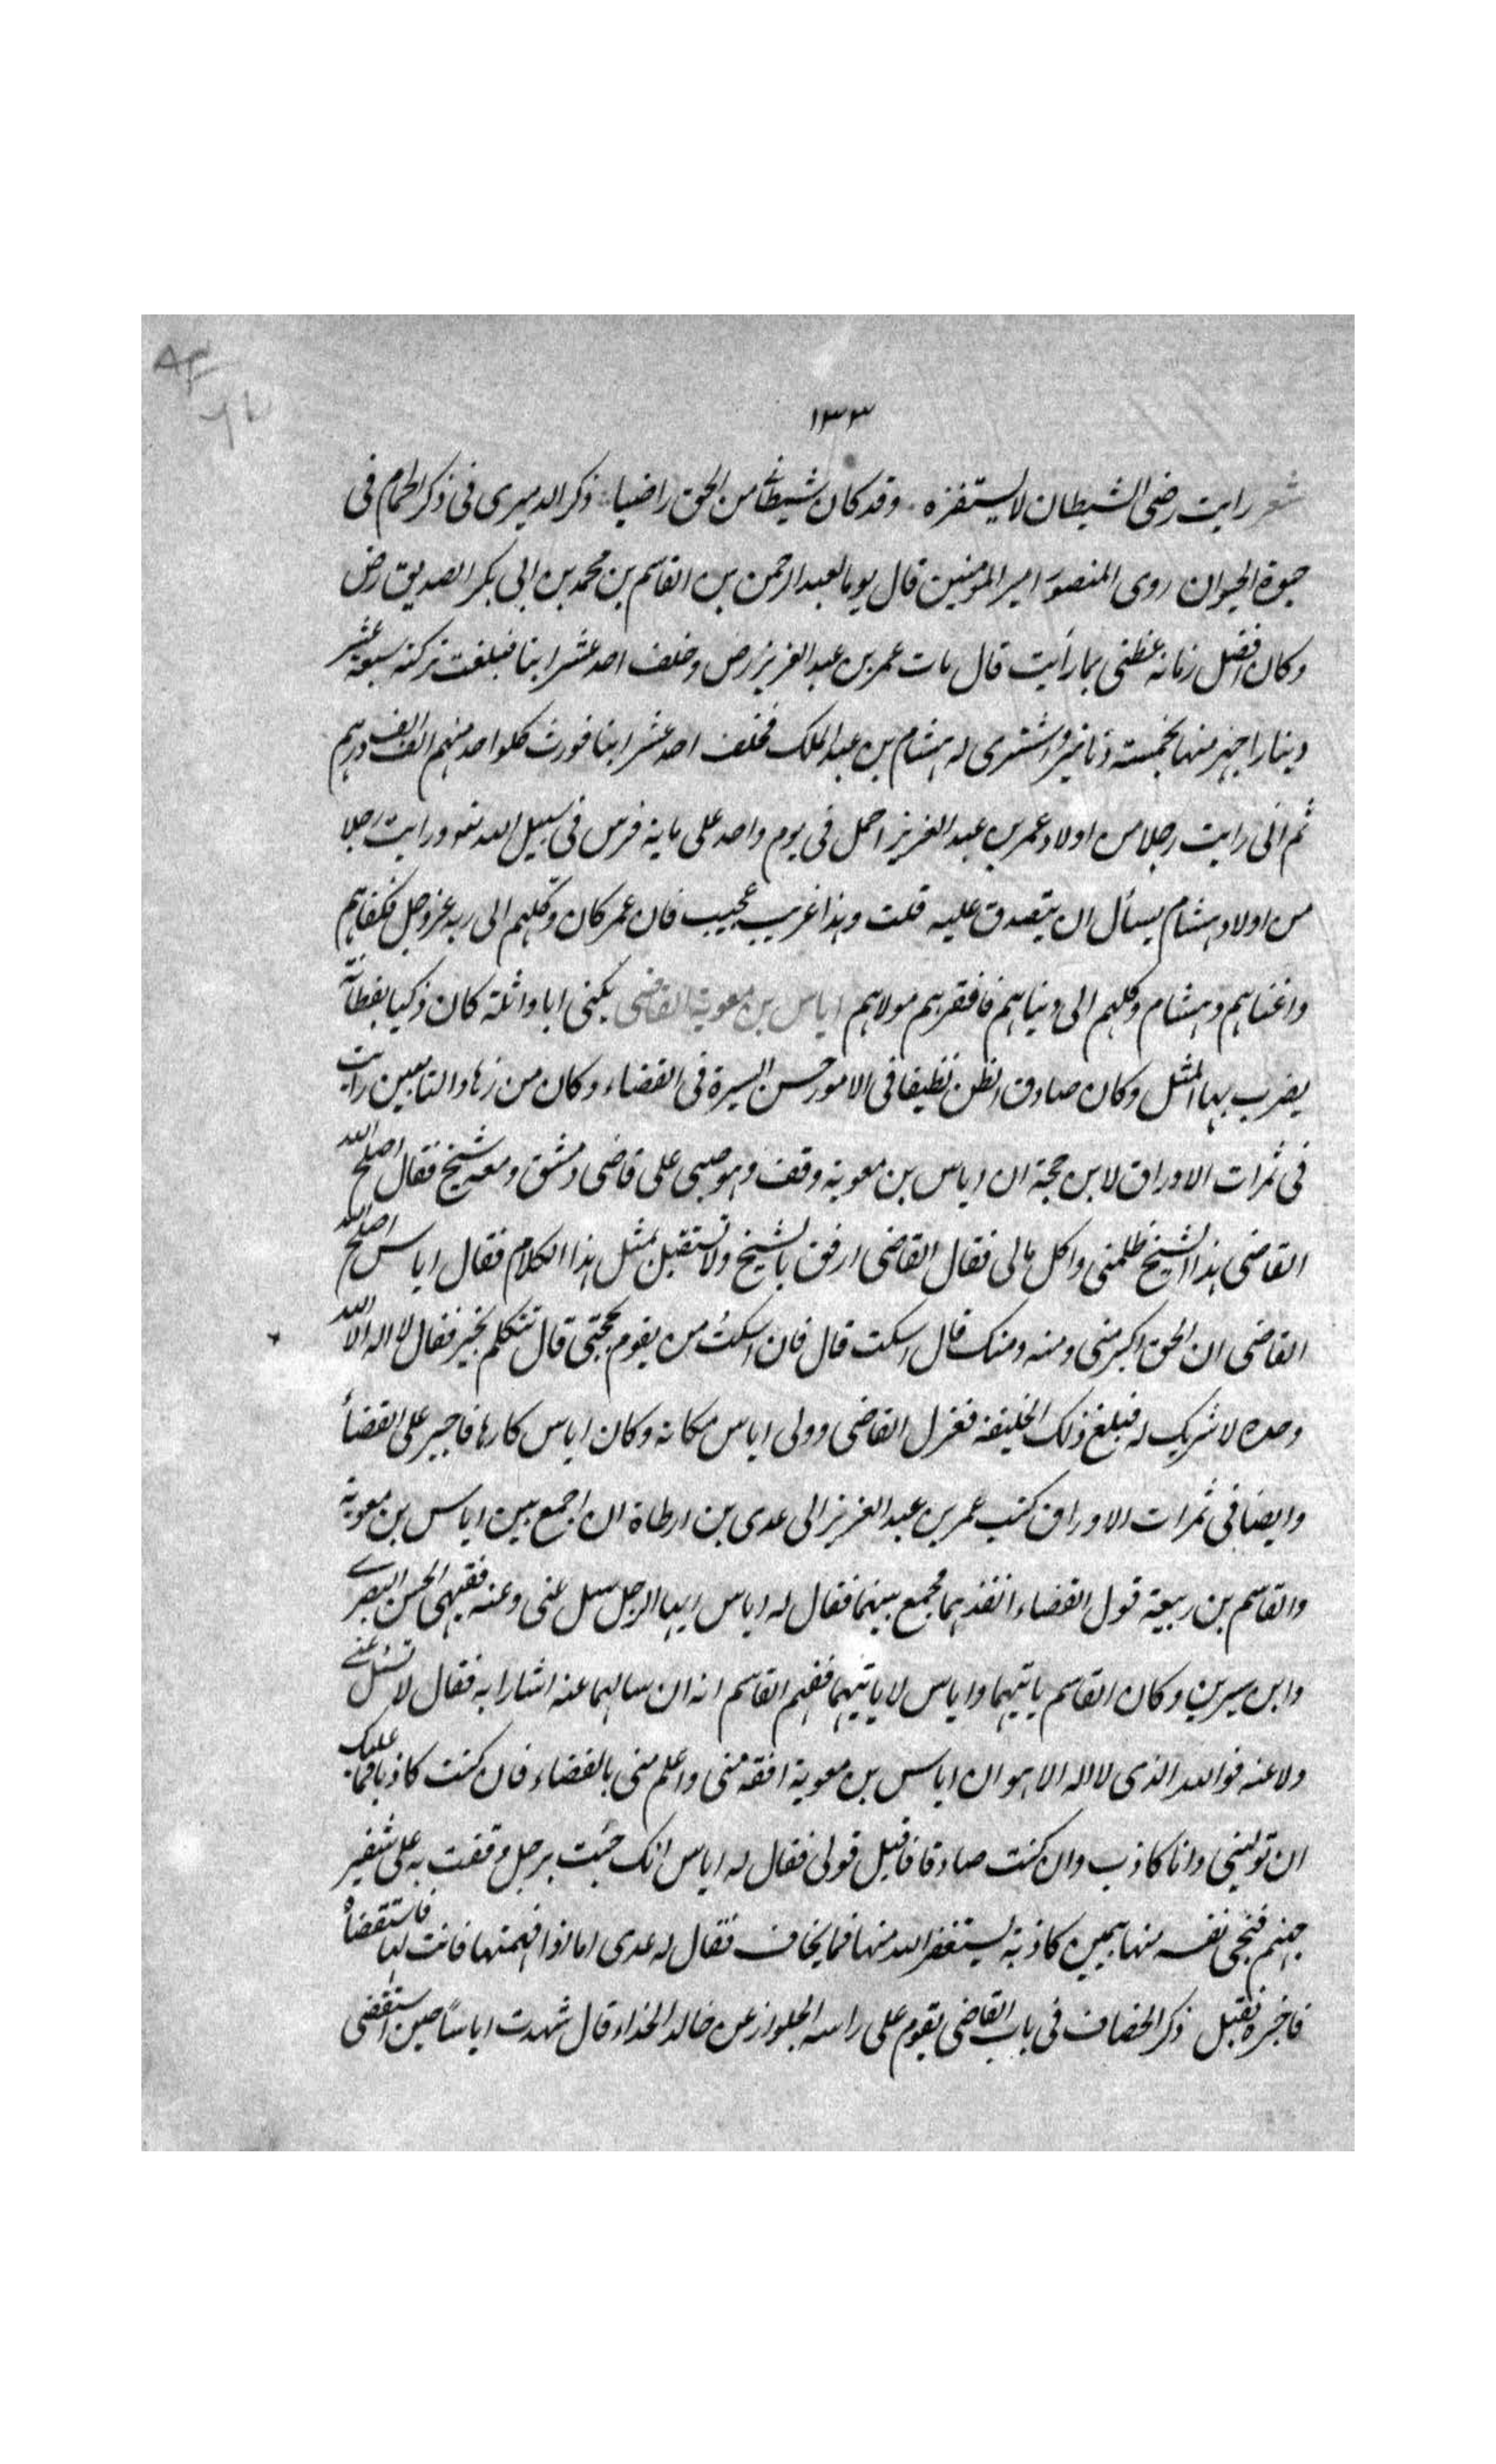 ١٣٣
شعر رايت رضى الشيطان لا يستفزه وقد كان شيطانى من الحق راضيا ذكر الدميرى فى ذكر الحمام فى
حيوة الحيوان روى المنصور امير المؤمنين قال يوما لعبد الرحمن بن القاسم بن محمد بن ابى بكر الصديق رض
وكان افضل زمانه عظنى بما رأيت قال مات عمر بن عبد العزيز رض وخلف احد عشر ابنا فبلغت تركته سبعة عشر
دينارا جهز منها بخمسة دنانير واشترى له هشام بن عبد الملك فخلف احد عشر ابنا فورث كلواحد منهم الف الف درهم
ثم انى رايت رجلا من اولاد عمر بن عبد العزيز احمل فى يوم واحد على ماية فرس فى سبيل الله تعو ورايت رجلا
من اولاد هشام يسأل ان يتصدق عليه قلت وهذا غريب عجيب فان عمر كان وكلهم الى ربه عز وجل فكفاهم
واغناهم وهشام وكلهم الى دنياهم فافقرهم مولاهم اياس بن معوية القاضى يكنى ابا واثلة كان ذكيا بفطانته
يضرب بها المثل وكان صادق الظن نظيفا فى الامور حسن السيرة فى القضاء وكان من زهاد التابعين رايت
فى ثمرات الاوراق لابن حجة ان اياس بن معوية وقف وهو صبى على قاضى دمشق ومعه شيخ فقال اصلح الله
القاضى هذا الشيخ ظلمنى واكل مالى فقال القاضى ارفق بالشيخ ولا تستقبل بمثل هذا الكلام فقال اياس اصلح الله
القاضى ان الحق اكبر منى ومنه ومنك قال اسكت قال فان اسكت من يقوم بحجتى قال تتكلم بخير فقال لا اله الا الله
وحده لا شريك له فبلغ ذلك الخليفة فعزل القاضى وولى اياس مكانه وكان اياس كارها فاجبر على القضاء
وايضا فى ثمرات الاوراق كتب عمر بن عبد العزيز الى عدى بن ارطاة ان اجمع بين اياس بن معوية
والقاسم بن ربيعة قول القضاء انفذهما فجمع بينهما فقال له اياس ايها الرجل سل عنى وعنه فقيهى الحسن البصرى
وابن سيرين وكان القاسم ياتيهما واياس لا ياتيهما ففهم القاسم انه ان سالهما عنه اشارا به فقال لا تسئل عنى
ولا عنه فوالله الذى لا اله الا هو ان اياس بن معوية افقه منى واعلم منى بالقضاء فان كنت كاذبا فما عليك
ان تولينى وانا كاذب وان كنت صادقا فاقبل قولى فقال له اياس انك جئت برجل وقفت به على شفير
جهنم فنجى نفسه منها بيمين كاذبة يستغفر الله منها فما يخاف فقال له عدى اما اذا فهمتها فانت لها فاستقضاه
فاخبره فقبل ذكر الخصاف فى باب القاضى يقوم على راسه الجلواز عن خالد الحذاء قال شهدت اياسا حين استقضى